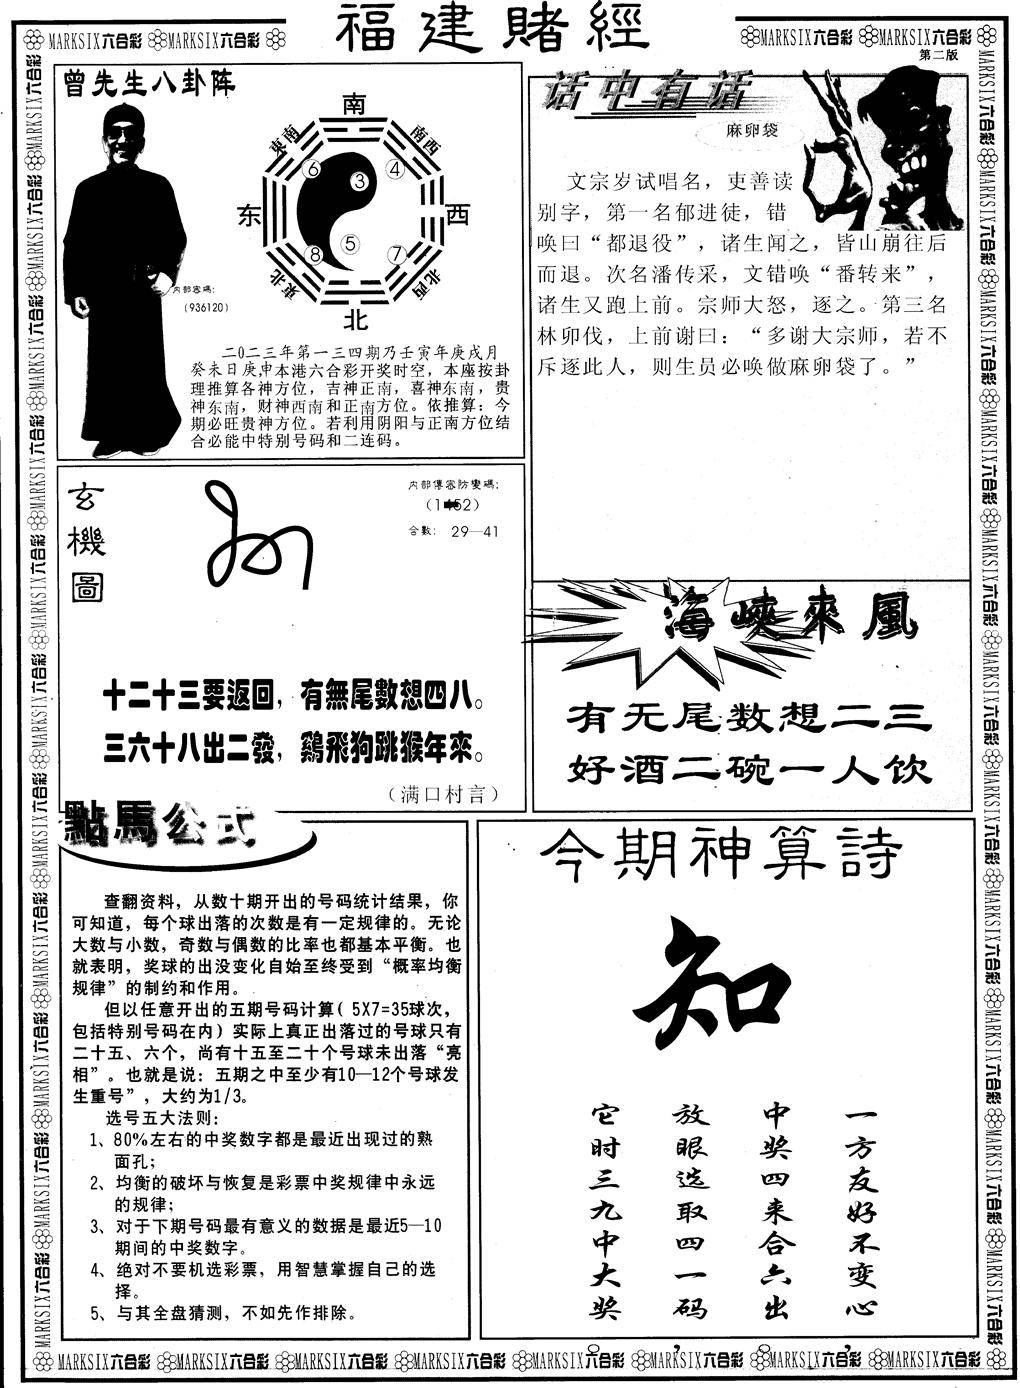 福建賭經
MARKSIX六合彩 MARKSIX六合彩
MARKSIX六合彩 MARKSIX六合彩
第二版
曾先生八卦阵
南
東南 南西
⑥ ③ ④
东 西
⑧ ⑤ ⑦
東北 北西
北
内部密碼:
(936120)
二0二三年第一三四期乃壬寅年庚戌月
癸未日庚申本港六合彩开奖时空，本座按卦
理推算各神方位，吉神正南，喜神东南，贵
神东南，财神西南和正南方位。依推算：今
期必旺贵神方位。若利用阴阳与正南方位结
合必能中特别号码和二连码。
话中有话
麻卵袋
文宗岁试唱名，吏善读
别字，第一名郁进徒，错
唤曰“都退役”，诸生闻之，皆山崩往后
而退。次名潘传采，文错唤“番转来”，
诸生又跑上前。宗师大怒，逐之。第三名
林卯伐，上前谢曰：“多谢大宗师，若不
斥逐此人，则生员必唤做麻卵袋了。”
玄機圖
内部傳密防變碼:
合數: 29—41
十二十三要返回，有無尾數想四八。
三六十八出二發，鷄飛狗跳猴年來。
（满口村言）
海峽來風
有无尾数想二三
好酒二碗一人饮
點馬公式
查翻资料，从数十期开出的号码统计结果，你
可知道，每个球出落的次数是有一定规律的。无论
大数与小数，奇数与偶数的比率也都基本平衡。也
就表明，奖球的出没变化自始至终受到“概率均衡
规律”的制约和作用。
但以任意开出的五期号码计算( 5X7=35球次，
包括特别号码在内）实际上真正出落过的号球只有
二十五、六个，尚有十五至二十个号球未出落“亮
相”。也就是说：五期之中至少有10—12个号球发
生重号”，大约为1/3。
选号五大法则：
1、80%左右的中奖数字都是最近出现过的熟
面孔；
2、均衡的破坏与恢复是彩票中奖规律中永远
的规律；
3、对于下期号码最有意义的数据是最近5—10
期间的中奖数字。
4、绝对不要机选彩票，用智慧掌握自己的选
择。
5、与其全盘猜测，不如先作排除。
今期神算詩
知
一方友好不变心，
中奖四来合六出。
放眼选取四一码，
它时三九中大奖。
MARKSIX六合彩 MARKSIX六合彩 MARKSIX六合彩 MARKSIX六合彩 MARKSIX六合彩 MARKSIX六合彩 MARKSIX六合彩 MARKSIX六合彩